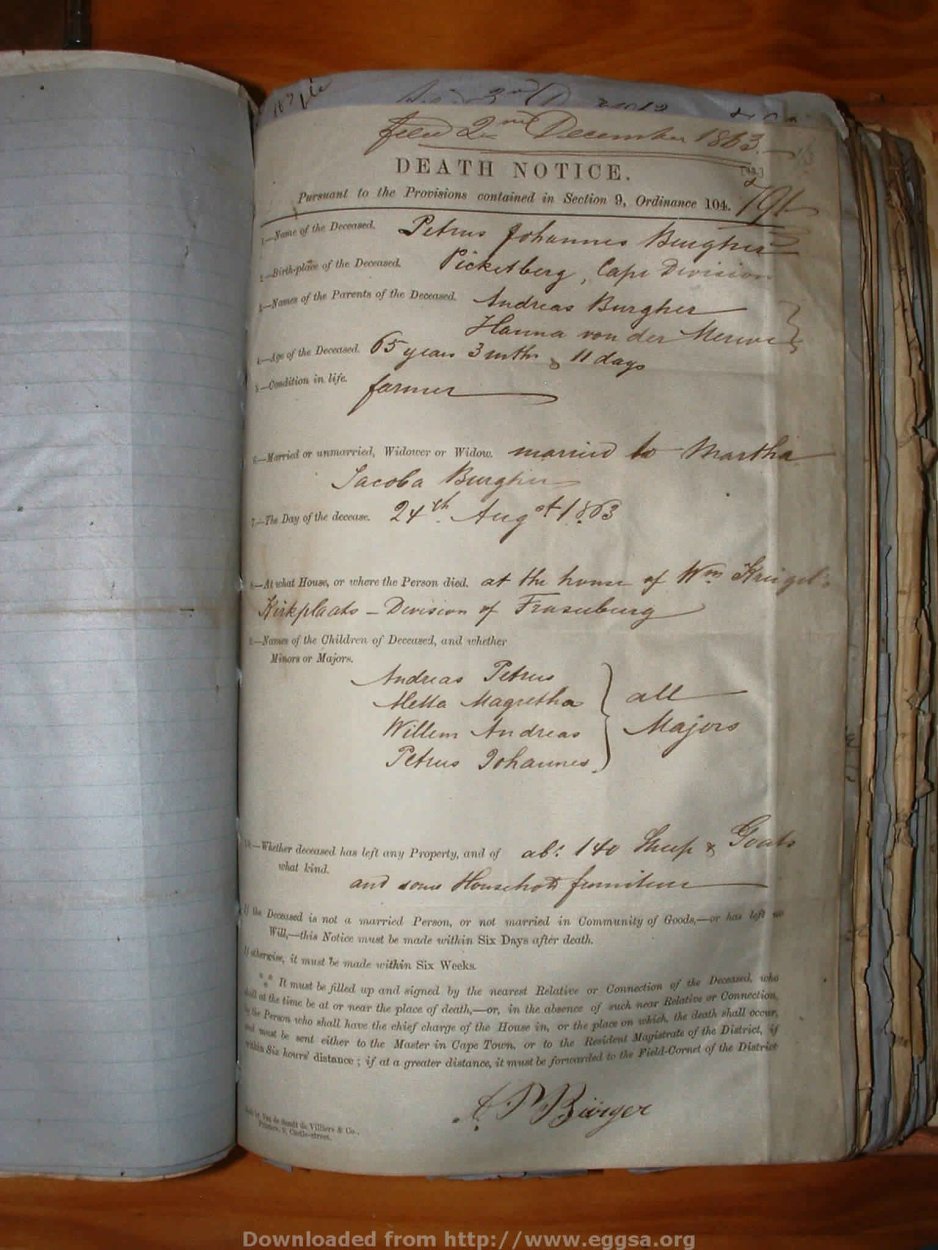 filed 2nd December 1863.
DEATH NOTICE.
Pursuant to the Provisions contained in Section 9, Ordinance 104.
791
1.—Name of the Deceased. Petrus Johannes Burgher
2.—Birth-place of the Deceased. Picketberg, Cape Division
3.—Names of the Parents of the Deceased. Andreas Burgher
Hanna von der Merwe
4.—Age of the Deceased. 65 years 3 mths & 11 days
5.—Condition in life. farmer
6.—Married or unmarried, Widower or Widow. married to Martha
Jacoba Burgher
7.—The Day of the decease. 24th Augst 1863
8.—At what House, or where the Person died. at the house of Wm Krugel's
Kirkplaats – Division of Fraserburg
9.—Names of the Children of Deceased, and whether
Minors or Majors.
Andreas Petrus
Metta Magretha all
Willem Andreas Majors
Petrus Johannes
10.—Whether deceased has left any Property, and of abt. 140 Sheep & Goats
what kind.
and some Household furniture
If the Deceased is not a married Person, or not married in Community of Goods,—or has left no
Will,—this Notice must be made within Six Days after death.
If otherwise, it must be made within Six Weeks.
*** It must be filled up and signed by the nearest Relative or Connection of the Deceased, who
shall at the time be at or near the place of death,—or, in the absence of such near Relative or Connection,
by the Person who shall have the chief charge of the House in, or the place on which, the death shall occur,
and must be sent either to the Master in Cape Town, or to the Resident Magistrate of the District, if
within Six hours' distance; if at a greater distance, it must be forwarded to the Field-Cornet of the District
A P Burger
Van de Sandt de Villiers & Co.,
Printers, 9, Castle-street.
Downloaded from http://www.eggsa.org